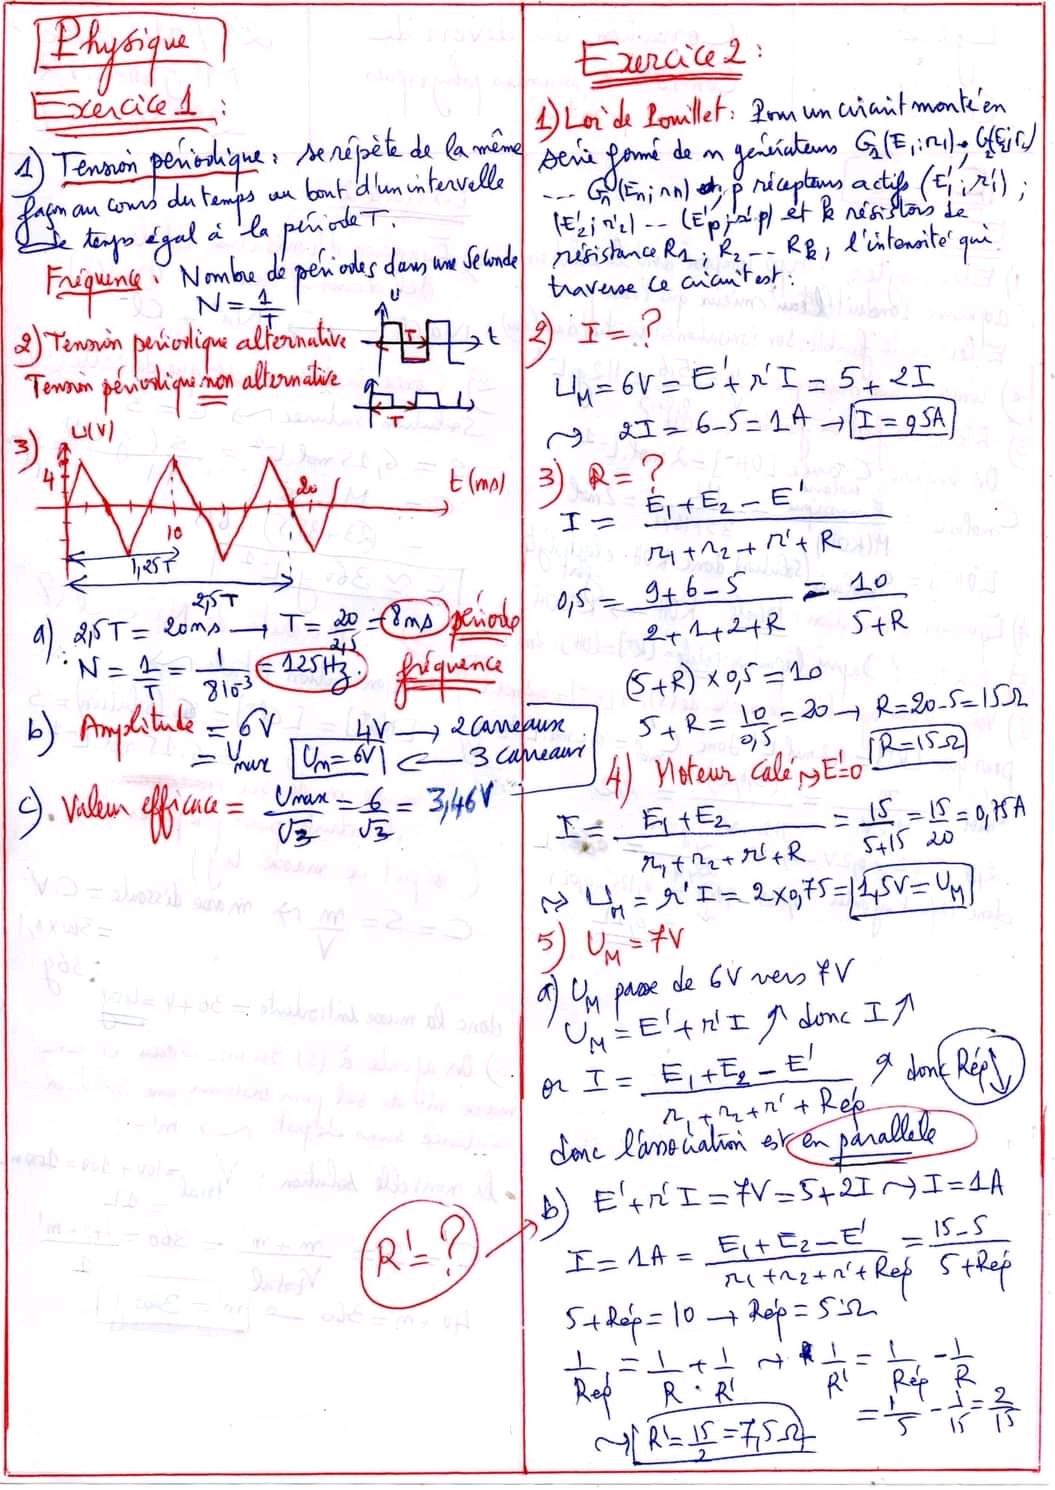 Physique
Exercice 1 :
1) Tension périodique : se répète de la même
façon au cours du temps au bout d'un intervelle
de temps égal à la période T.
Fréquence : Nombre de périodes dans une seconde
N = 1/T
2) Tension périodique alternative
U
T
t
Tension périodique non alternative
T
3) U(V)
4
20
t(ms)
10
1,25T
2,5T
a) 2,5T = 20ms → T = 20/2,5 = 8ms période
N = 1/T = 1/8 10⁻³ = 125Hz. fréquence
b) Amplitude = 6V 4V → 2 carreaux
= Umax Um = 6V ← 3 carreaux
c) Valeur efficace = Umax/√3 = 6/√3 = 3,46V
Exercice 2 :
1) Loi de Pouillet : Pour un circuit monté en
série formé de n générateurs G1(E1;r1), G2(E2;r2)
--- Gn(En;rn) p récepteurs actifs (E'1;r'1);
(E'2;r'2) --- (E'p;r'p) et k résistors de
résistance R1; R2 --- Rk, l'intensité qui
traverse ce circuit est :
2) I = ?
UM = 6V = E' + r'I = 5 + 2I
⇝ 2I = 6-5 = 1A → I = 0,5A
3) R = ?
I = E1 + E2 - E' / r1 + r2 + r' + R
0,5 = 9+6-5 / 2+1+2+R = 10 / 5+R
(5+R) × 0,5 = 10
5 + R = 10/0,5 = 20 → R = 20-5 = 15Ω
R = 15Ω
4) Moteur calé ⇝ E'=0
I = E1 + E2 / r1 + r2 + r' + R = 15/5+15 = 15/20 = 0,75A
⇝ UM = r'I = 2×0,75 = 1,5V = UM
5) UM = 7V
a) UM passe de 6V vers 7V
UM = E' + r'I ↗ donc I ↗
or I = E1 + E2 - E' / r1 + r2 + r' + Rép ↗ donc Rép ↓
donc l'association est en parallèle
b) E' + r'I = 7V = 5+2I ⇝ I = 1A
R' = ?
I = 1A = E1 + E2 - E' / r1 + r2 + r' + Rép = 15-5 / 5+Rép
5+Rép = 10 → Rép = 5Ω
1/Rép = 1/R + 1/R' ⇝ 1/R' = 1/Rép - 1/R
= 1/5 - 1/15 = 2/15
⇝ R' = 15/2 = 7,5Ω